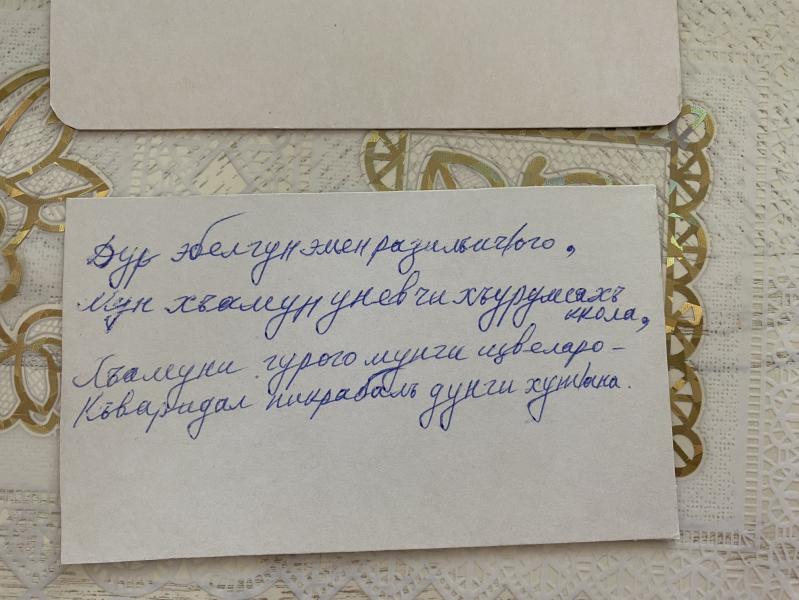 Дур эбелгун эмен разилъичIого,
Мун хъамун уневчи хъурумсахъ
ккола,
Хъамуни гурого мунги щвеларо -
Къваридал пикрабалъ дунги хутIана.